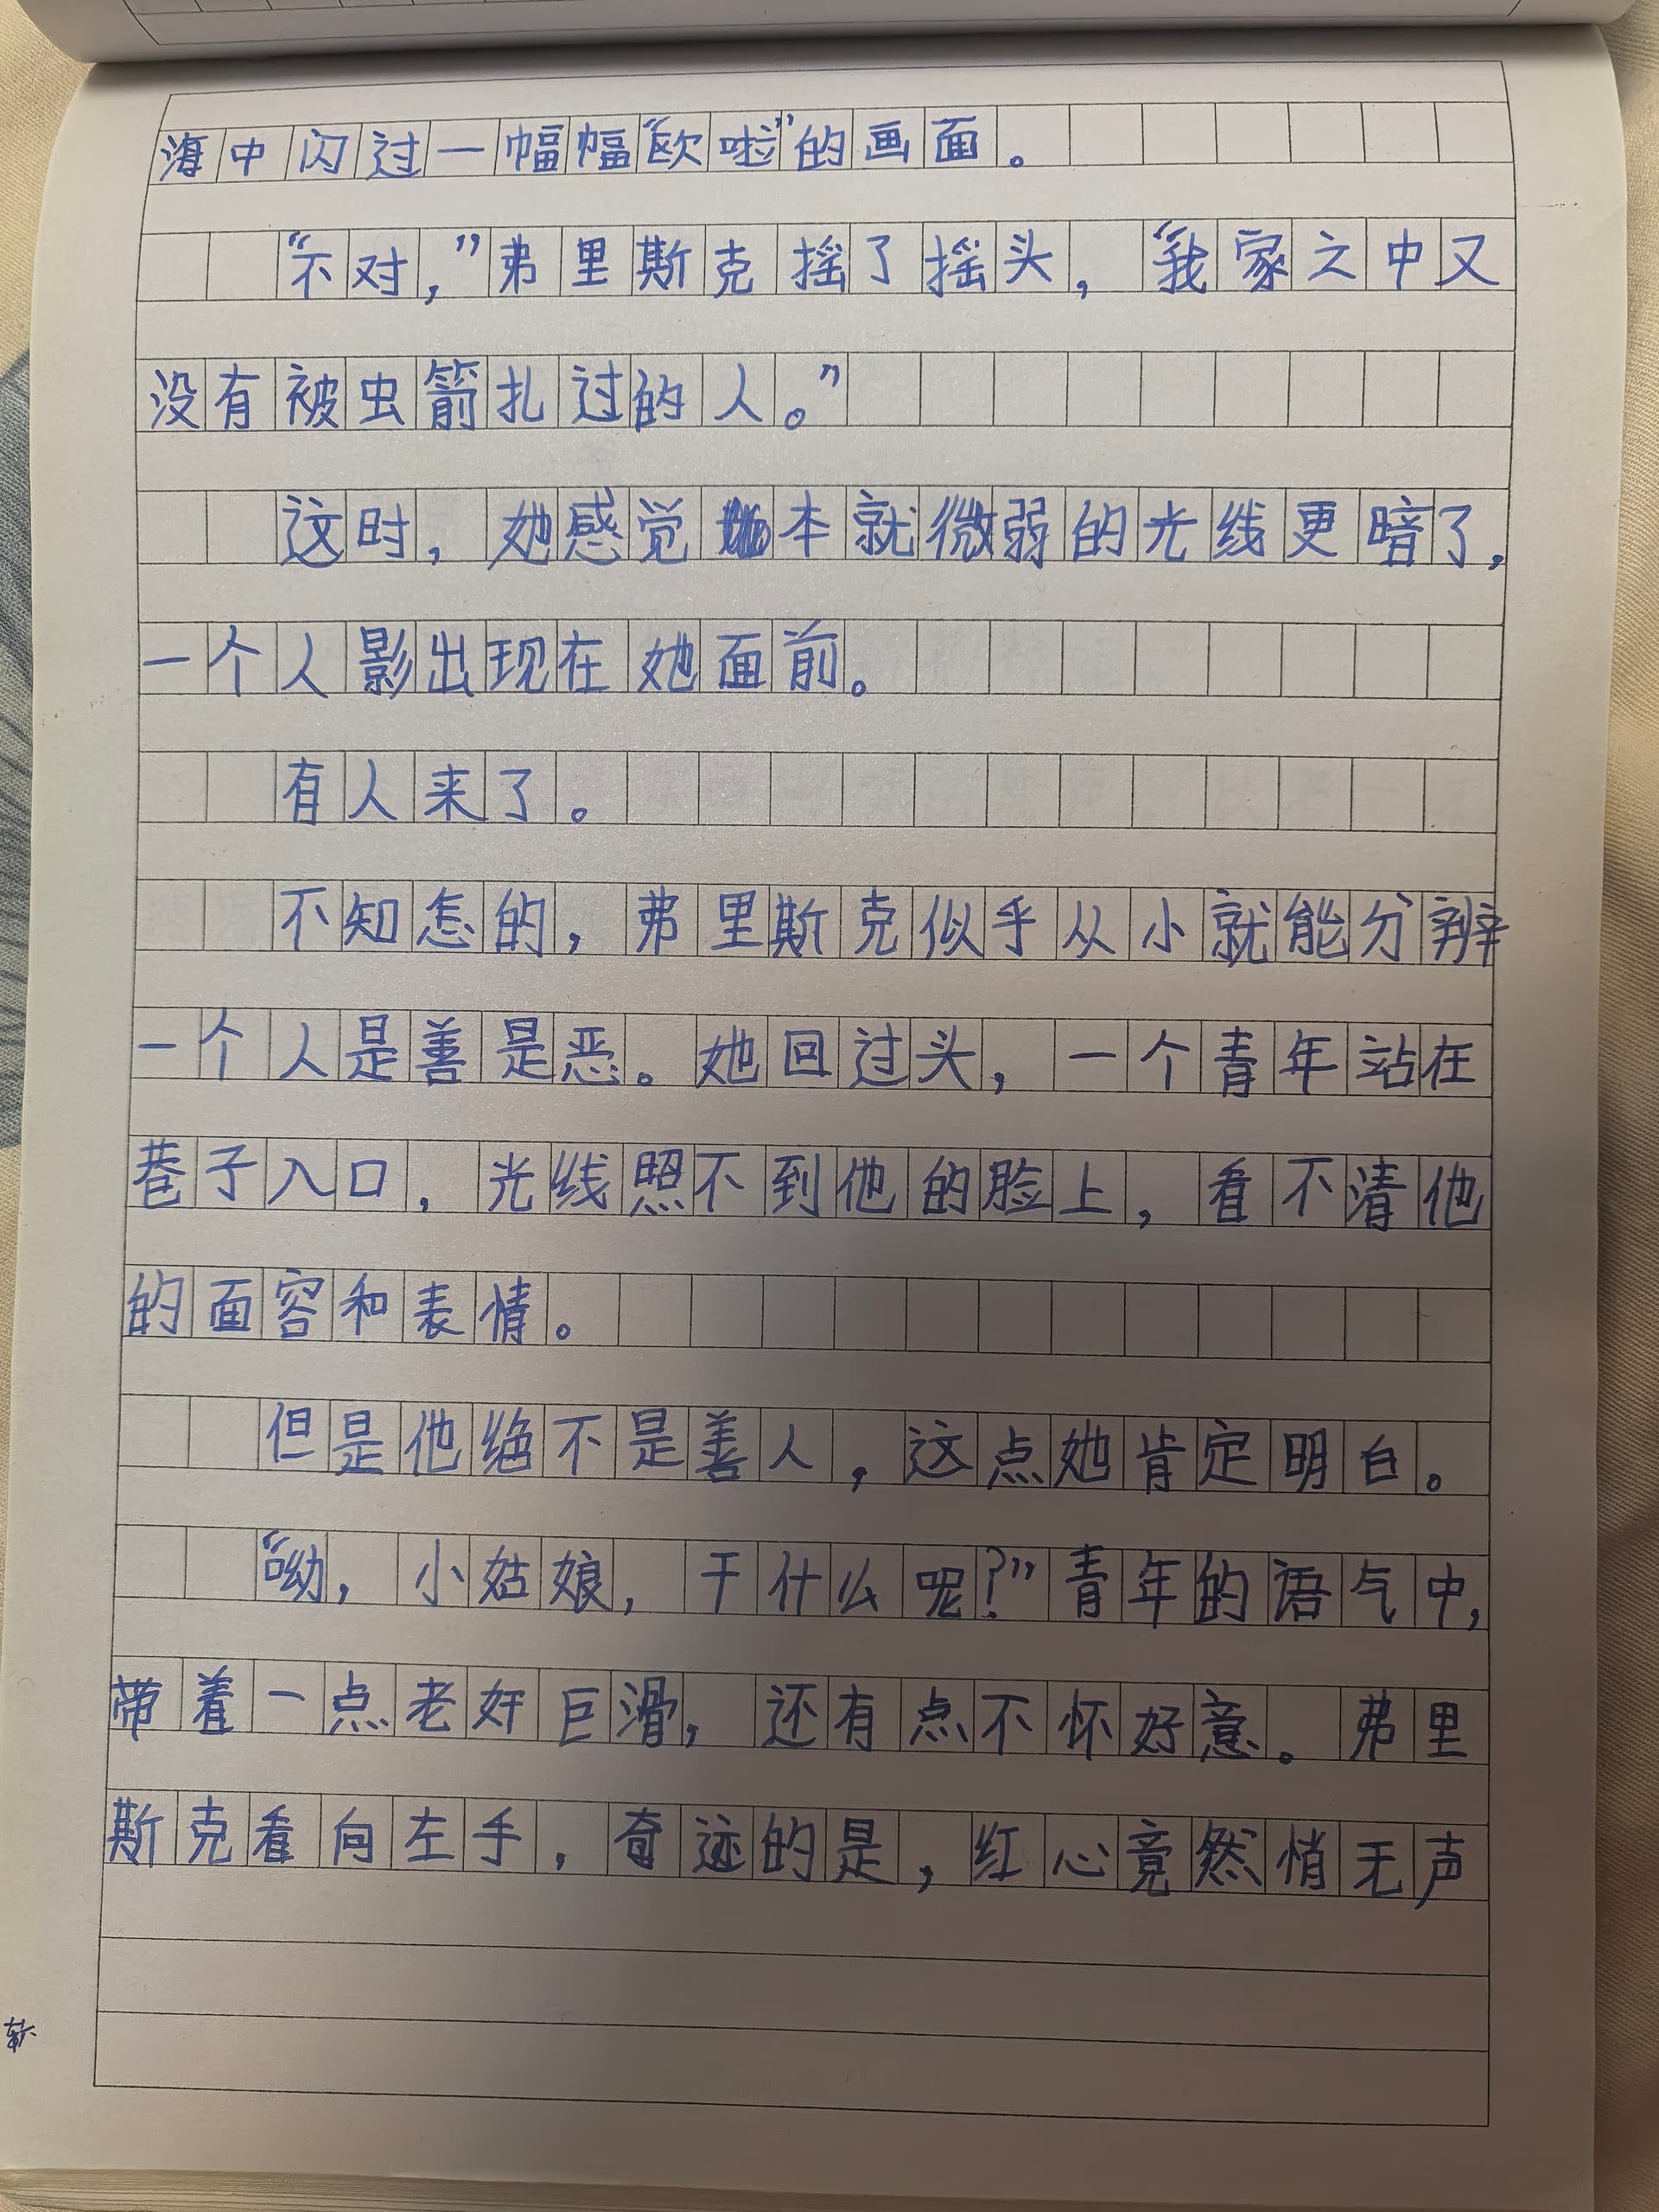 海中闪过一幅幅“欧啦”的画面。
“不对，”弗里斯克摇了摇头，“我家之中又
没有被虫箭扎过的人。”
这时，她感觉本就微弱的光线更暗了，
一个人影出现在她面前。
有人来了。
不知怎的，弗里斯克似乎从小就能分辨
一个人是善是恶。她回过头，一个青年站在
巷子入口，光线照不到他的脸上，看不清他
的面容和表情。
但是他绝不是善人，这点她肯定明白。
“呦，小姑娘，干什么呢？”青年的语气中，
带着一点老奸巨滑，还有点不怀好意。弗里
斯克看向左手，奇迹的是，红心竟然悄无声